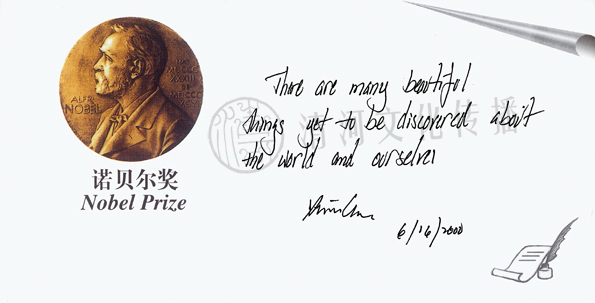 ALFR
NOBEL
诺贝尔奖
Nobel Prize
There are many beautiful
things yet to be discovered about
the world and ourselves
汾河文化传播
6/16/2000